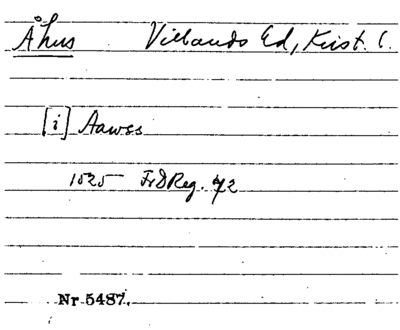 Åhus Villands Hd, Krist. l.
[i] Aawss
1525 FrDReg. 42
Nr 5487.